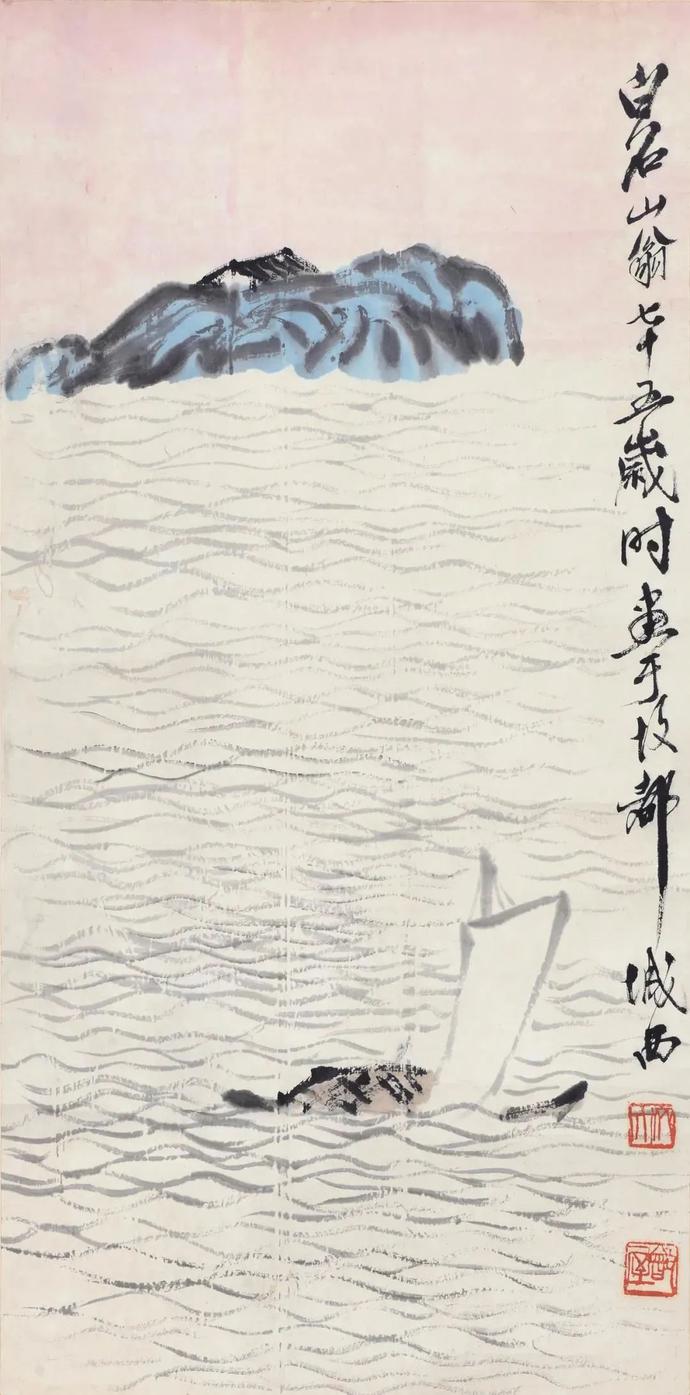 白石山翁七十五歲时畫于故都城西